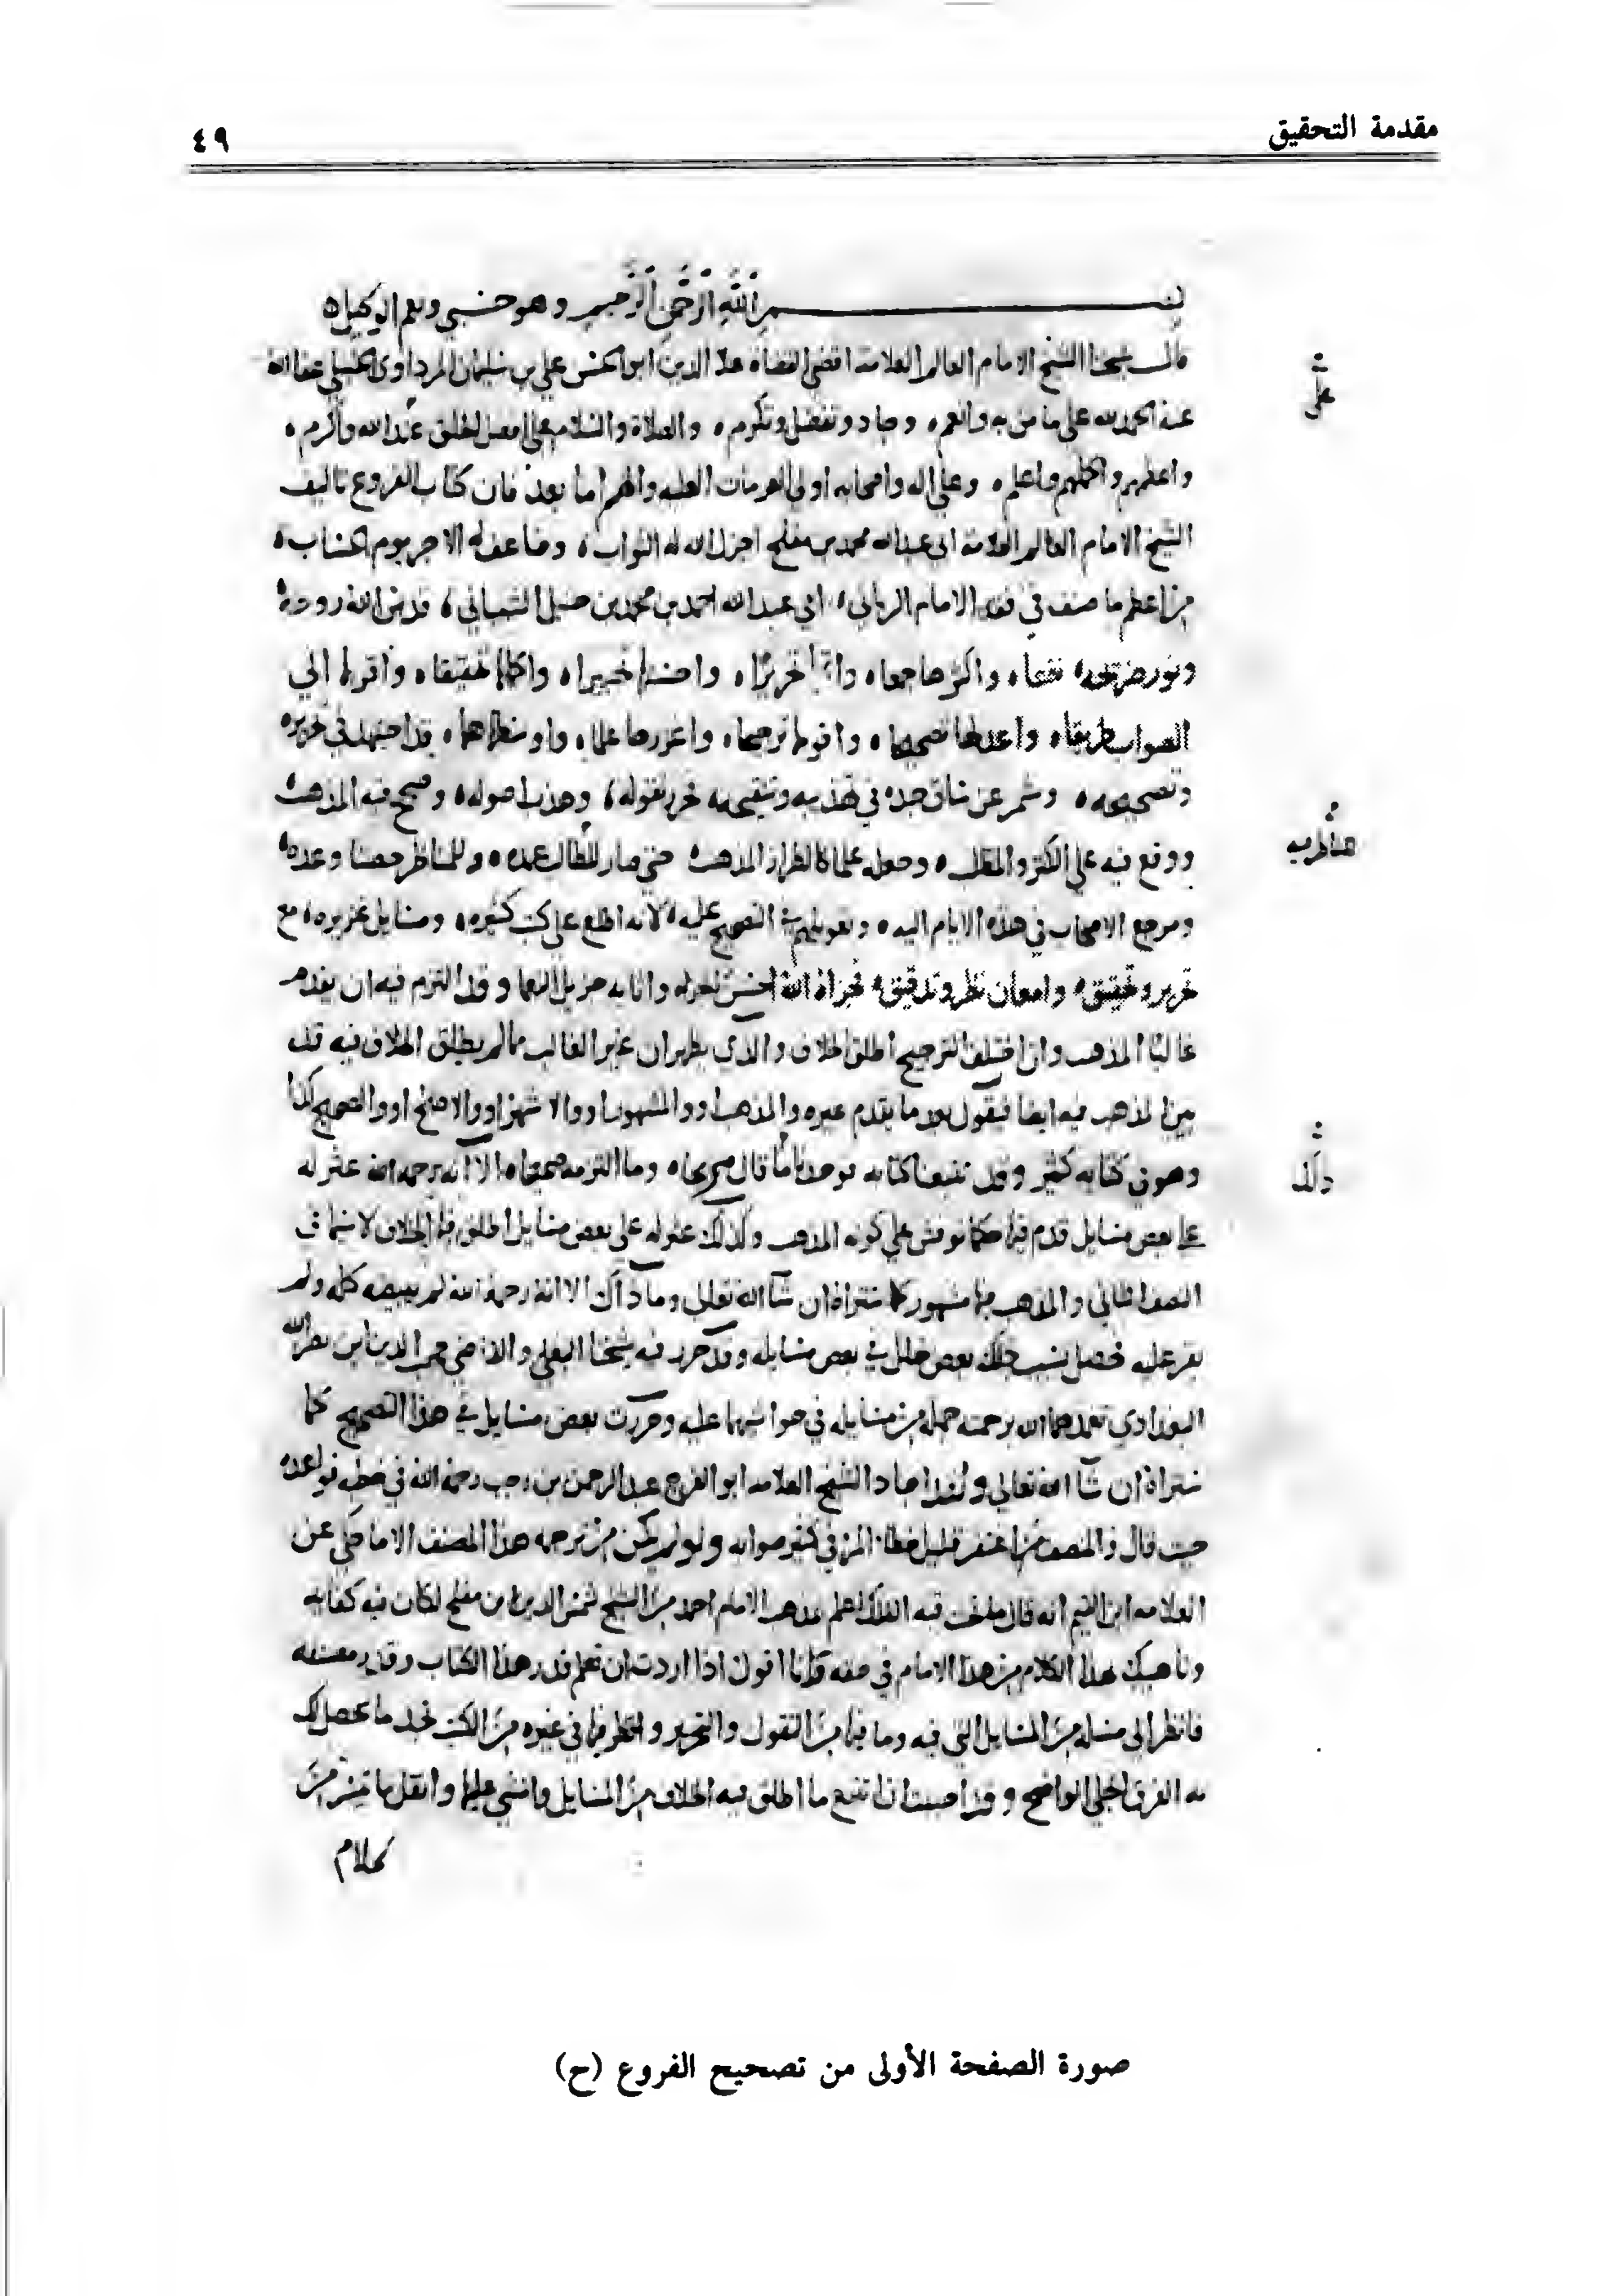 مقدمة التحقيق
٤٩
بسم الله الرحمن الرحيم وهو حسبي ونعم الوكيل
قال شيخنا الشيخ الامام العالم العلامة اقضى القضاة علا الدين ابو الحسن علي بن سليمان المرداوي الحنبلي عفا الله
على
عنه الحمد لله على ما من به وانعم وجاد وتفضل وتكرم والصلاة والسلام على افضل الخلق عند الله واكرم
واعلمهم واكملهم وعلى اله واصحابه اولي العزمات العليه والهمم اما بعد فان كتاب الفروع تاليف
الشيخ الامام العالم العلامة ابي عبد الله محمد بن مفلح اجزل الله له الثواب وضاعف له الاجر يوم الحساب
من اعظم ما صنف في فقه الامام الرباني ابي عبد الله احمد بن محمد بن حنبل الشيباني قدس الله روحه
ونور ضريحه نفعا واكثرها جمعا واتمها تحريرا واحسنها تحبيرا واكملها تحقيقا واقربها الى
الصواب طريقا واعدلها تصحيحا واقومها ترجيحا واغزرها علما واوسطها حجما قد اجتهد في تحريره
وتصحيحه وشمر عن ساق جده في تهذيبه وتنقيحه فحرر نقوله وهذب اصوله وصحح فيه المذهب
ووقع فيه على الكنز والمطلب وجعل علما كالطراز المذهب حتى صار للطالب عمدة وللناظر حصنا وعدة
ومرجع الاصحاب في هذه الايام اليه وتعويلهم في التصحيح عليه لانه اطلع على كتب كثيره ومسايل غزيره مع
تحرير وتحقيق وامعان نظر وتدقيق فجزاه الله احسن الجزا واثابه جزيل النعما وقد التزم فيه ان يقدم
غالبا المذهب وان اختلف الترجيح اطلق الخلاف والذي يظهر ان غير الغالب مما لم يطلق الخلاف فيه قد
بين المذهب فيه ايضا فيقول بعد ما يقدم غيره والمذهب او والمشهور او والاشهر او والاصح او والصحيح كذا
وهو في كتابه كثير وقد تتبعنا كتابه فوجدنا ما قال صحيحا وما التزمه صريحا الا انه رحمه الله عثر له
على بعض مسايل قدم فيها حكما نوقش على كونه المذهب وكذلك عثر له على بعض مسايل اطلق فيها الخلاف لا سيما في
النصف الثاني والمذهب فيها مشهور كما ستراه ان شا الله تعالى وما ذاك الا انه رحمه الله لم يبيضه كله ولم
يقر عليه فحصل بسبب ذلك بعض خلل في بعض مسايله وقد حرر فيه شيخنا البعلي والقاضي محب الدين ابن نصر الله
البغدادي تغمدهما الله برحمته جملة من مسايله في حواشيهما عليه وحررت بعض مسايل في هذا التصحيح كما
ستراه ان شا الله تعالى ولقد اجاد الشيخ العلامه ابو الفرج عبد الرحمن بن رجب رحمه الله في خطبة قواعده
حيث قال والمنصف من اغتفر قليل خطا المرء في كثير صوابه ولو لم يكن من ترجمة هذا المصنف الا ما حكي عن
العلامه ابن القيم انه قال ما تحت قبة الفلك اعلم بمذهب الامام احمد من الشيخ شمس الدين بن مفلح لكان فيه كفايه
وناهيك بهذا الكلام من هذا الامام في حقه وانا اقول اذا اردت ان تعلم قدر هذا الكتاب وقدر مصنفه
فانظر الى مسالة من المسايل التي فيه وما فيها من النقول والتحرير وانظر فيها في غيره من الكتب تجد ما يحصل لك
به الفرق الجلي الواضح وقد احببت ان اتتبع ما اطلق فيه الخلاف من المسايل وامشي عليها وانقل ما تيسر من
كلام
صورة الصفحة الأولى من تصحيح الفروع (ح)